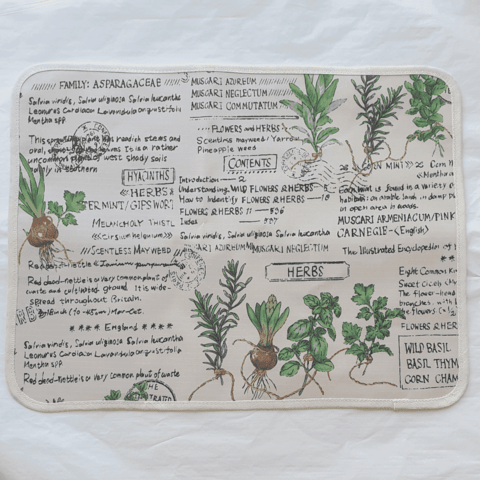 FAMILY: ASPARAGACEAE
Salvia viridis, Salvia uliginosa Salvia leucantha
Leonurus Cardiaca Lavandula angustifolia
Mentha spp
This common plant has reddish stems and
oval, It is a rather
uncommon plant of west shady soils
mainly in southern
HYACINTHS
HERBS &
FERMINT/GIPSYWORT
MELANCHOLY THISTL
<<Cirsium helenium>>
SCENTLESS MAY WEED
Red dead-nettle is a very common plant of
waste and cultivated ground It is wide-
spread throughout Britain.
March to
**** England ***
Salvia viridis, Salvia uliginosa Salvia leucantha
Leonurus Cardiaca Lavandula angustifolia
Mentha spp
Red dead-nettle is a very common plant of waste
MUSCARI AZUREUM
MUSCARI NEGLECTUM
MUSCARI COMMUTATUM
FLOWERS AND HERBS
Scentless mayweed/Yarrow
Pineapple weed
CONTENTS
Introduction — 2
Understanding WILD FLOWERS & HERBS
How to Indentify FLOWERS & HERBS — 18
FLOWERS & HERBS 11 — 536
Index — 537
Salvia viridis, Salvia uliginosa Salvia leucantha
MUSCARI AZUREUM MUSCARI NEGLECTUM
HERBS
CORN MINT Corn M
<<Mentha a
Corn mint is found in a variety
habitats on arable land in damp p
in open area in woods.
MUSCARI ARMENIACUM/PINK
CARNEGIE <English>
The Illustrated Encyclopedia of
Eight Common K
Sweet Cicely
The flower-head
branches, with
FLOWERS & HER
WILD BASIL
BASIL THYM
CORN CHAM
THE
ILLUSTRATED